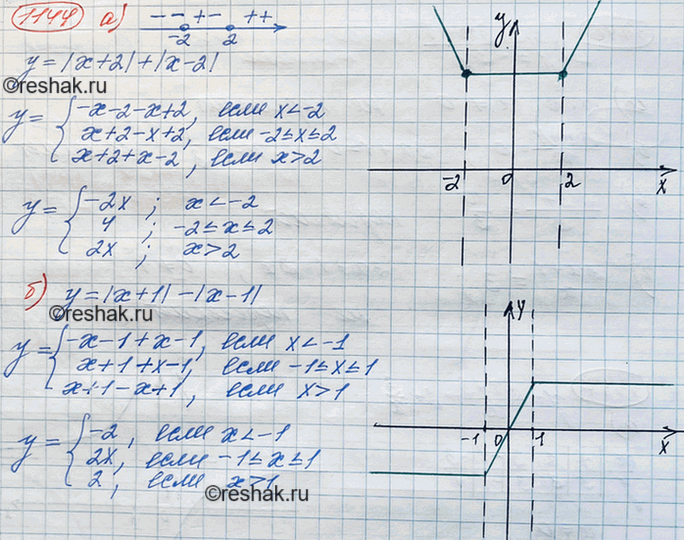 1144 а) − − + − + +
−2 2
y = |x+2| + |x−2|
©reshak.ru
y = { −x−2−x+2, если x<−2
x+2−x+2, если −2≤x≤2
x+2+x−2, если x>2
y = { −2x ; x<−2
4 ; −2≤x≤2
2x ; x>2
y
−2 0 2 x
б) y = |x+1| − |x−1|
©reshak.ru
y = { −x−1+x−1, если x<−1
x+1+x−1, если −1≤x≤1
x+1−x+1, если x>1
y = { −2, если x<−1
2x, если −1≤x≤1
2, если x>1
©reshak.ru
y
−1 0 1 x